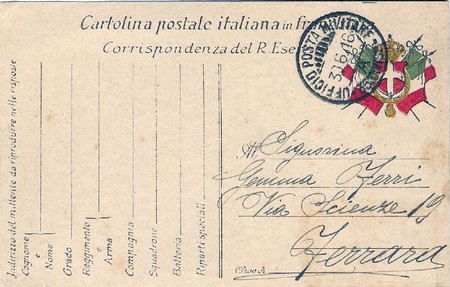 Cartolina postale italiana in fr
Corrispondenza del R. Ese
UFFICIO POSTA MILITARE
30.6.16
Indirizzo del mittente da riprodurre nelle risposte
Cognome e Nome
Grado
Reggimento e Arma
Compagnia
Squadrone
Batteria
Riparti speciali
All Signorina
Gemma Ferri
Via Scienze 19
Ferrara